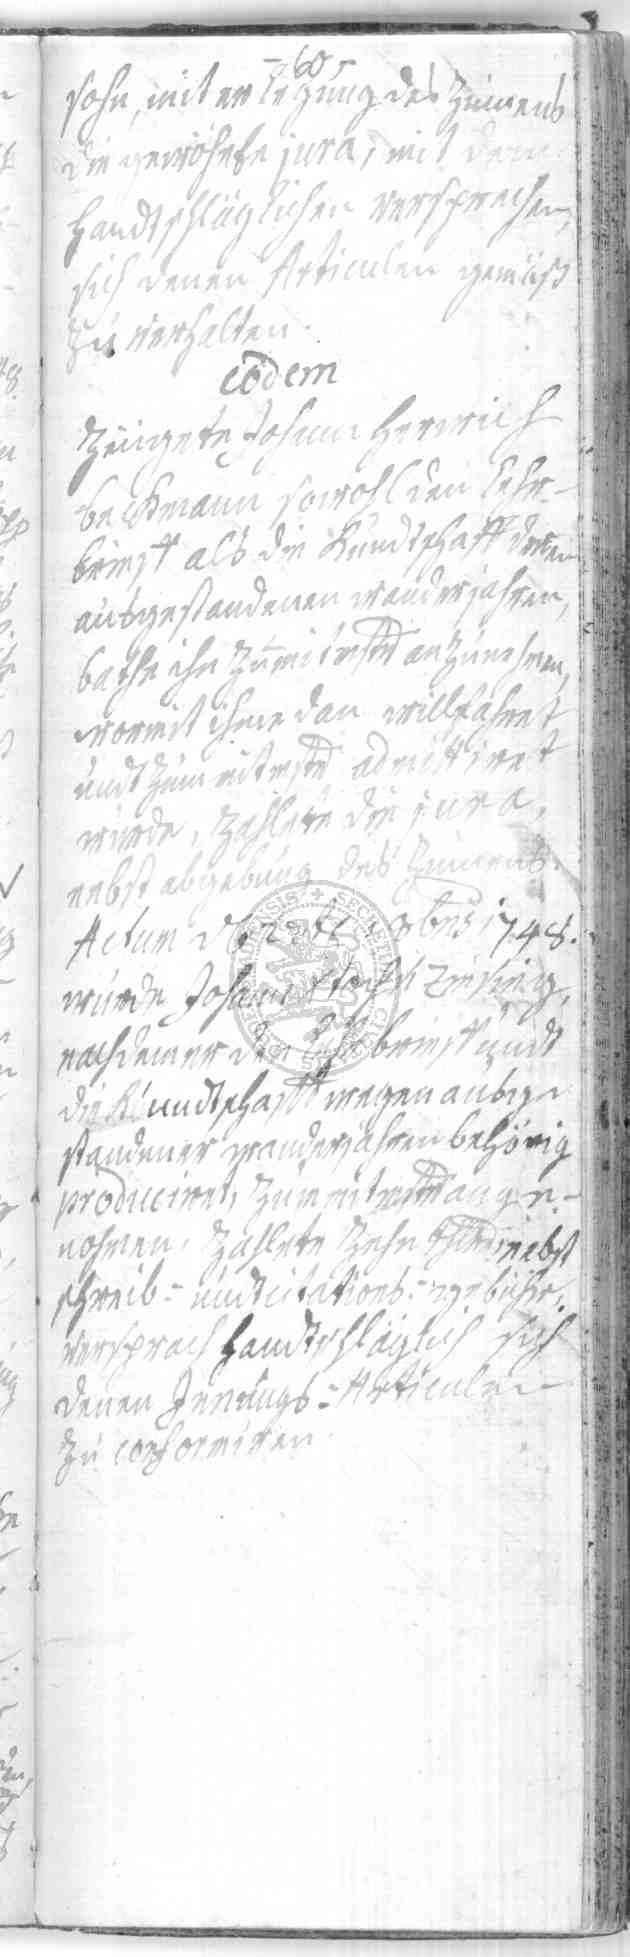 - 60 -
sohn, mit erlegung des Zinnens
die gewöhnliche jura, mit dem
handtschläglichen versprechen,
sich denen Articulen gemäß
zu verhalten.
eodem
Zeigete Johann Henrich
beckmann sowohl den Lehr-
brieff als die Kundtschafft deren
ausgestandenen wanderjahren,
bathe ihn zum anzunehmen,
womit ihme dan willfahret
undt zum admittiret
wurde, zahlete die jura,
nebst abgebung des Zinnens.
Actum 1748.
wurde Johann
nachdeme er den Lehrbrieff undt
die Kundtschafft wegen ausge-
standener wanderjahren behörig
produciret, zum ange-
nohmen, zahlete zehn nebst
schreib- undt citations-gebühr,
versprach handtschläglich sich
denen Innungs-Articulen
zu conformiren.